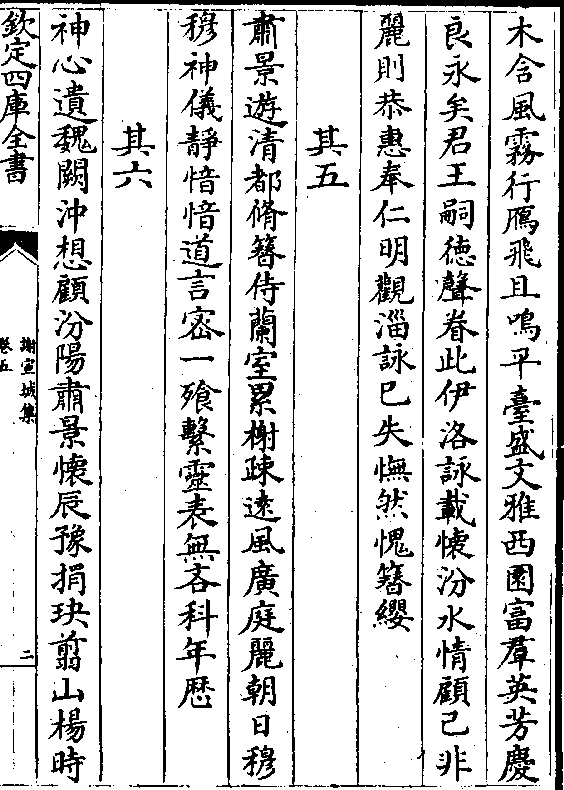 木含風霧行鴈飛且鳴平臺盛文雅西園富羣英芳慶
良永矣君王嗣德聲眷此伊洛詠載懷汾水情顧已非
麗則恭惠奉仁明觀淄詠已失憮然愧簪纓
其五
肅景遊清都脩簪侍蘭室累榭疎遠風廣庭麗朝日穆
穆神儀靜愔愔道言密一飱繫靈表無吝科年歴
其六
神心遺魏闕沖想顧汾陽肅景懷辰豫捐玦翦山楊時
欽定四庫全書
謝宣城集
卷五
二